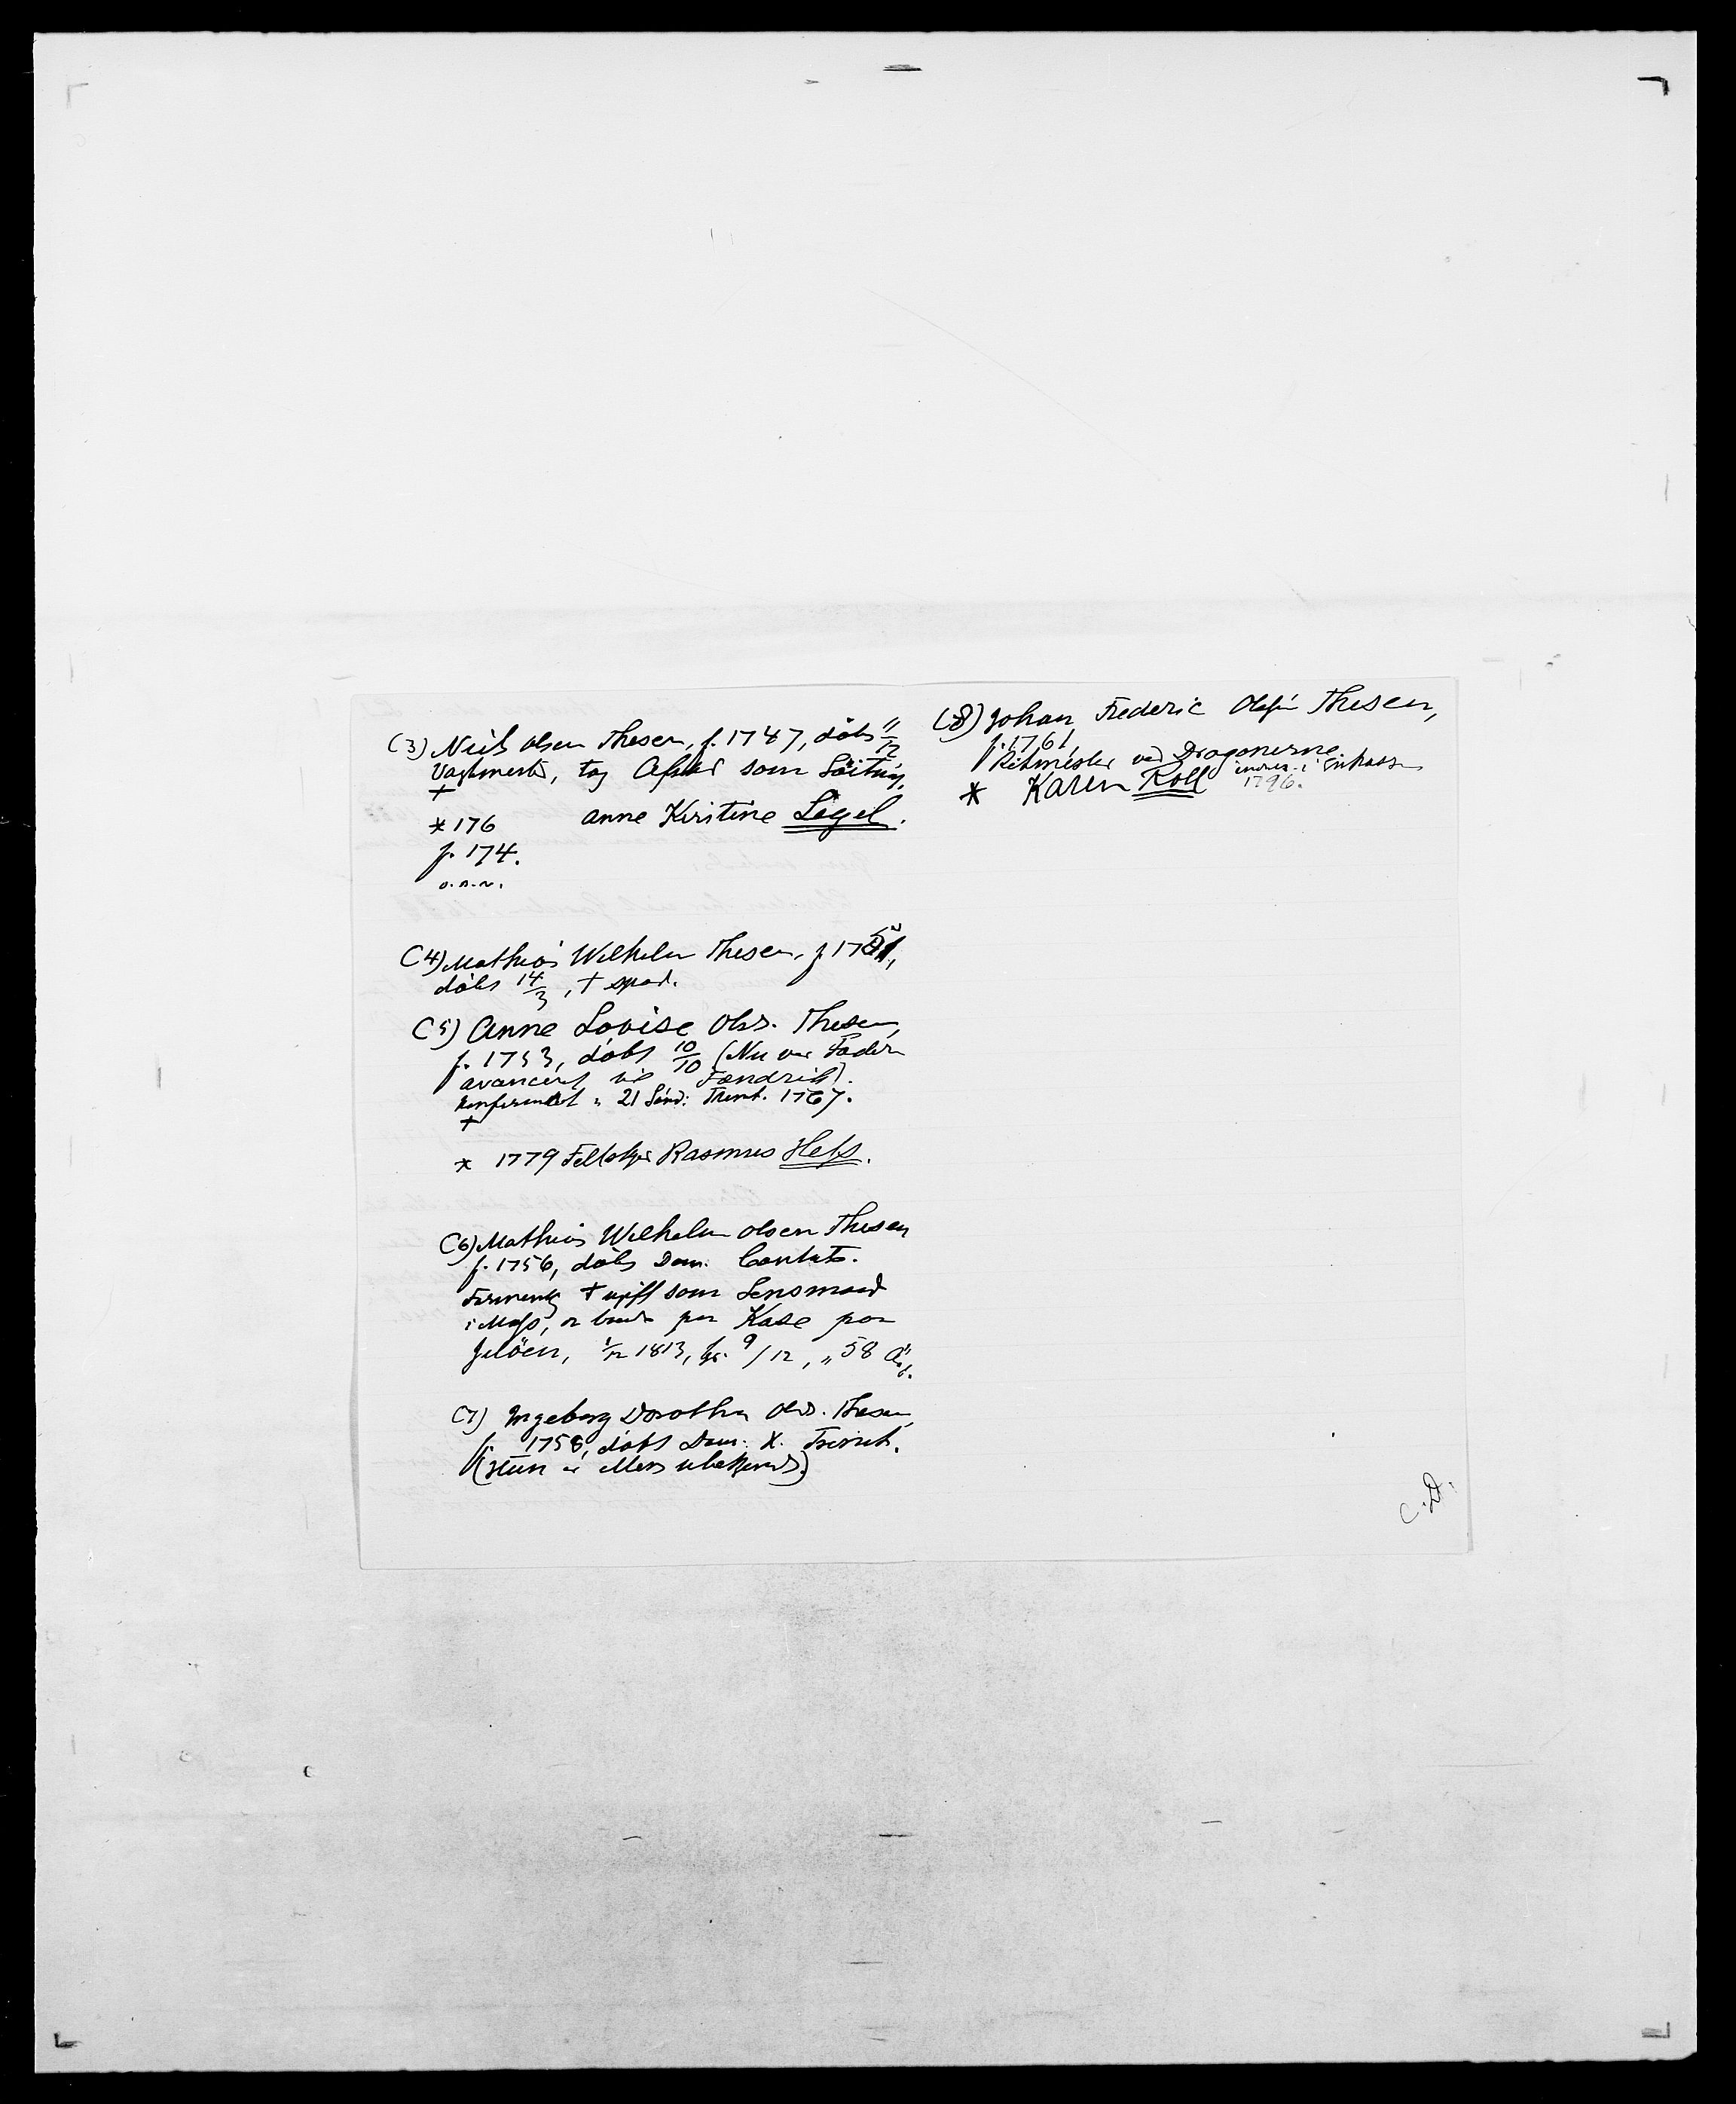 (3) Niels Olsen Thesen, f. 1747, döbt 11/12
Vagtmester, tog Afsked som Löitn.
+
* 176 Anne Kirstine Legel.
f. 174.
o.s.v.
(4) Mathias Wilhelm Thesen, f 1751,
döbt 14/3, + spæd.
(5) Anne Lovise Olsd. Thesen,
f. 1753, döbt 10/10 (Nu var Faderen
avanceret til Fændrik).
Konfirmeret 21 Sönd: Trinit. 1767.
+
* 1779 Feltskjær Rasmus Hefs.
(6) Mathias Wilhelm Olsen Thesen
f. 1756, döbt Dom: Cantate.
+ ugift som Lensmand
i Mofs, paa Kase paa
Jelöen, 1/12 1813, bgr. 9/12, "58 Aar".
(7) Ingeborg Dorothea Olsd. Thesen,
f. 1758, döbt Dom: X. Trinit.
(Hun er ellers ubekjendt).
(8) Johan Frederic Olsen Thesen,
f. 1761,
Ritmester ved Dragonerne
* Karen Roll 1796.
C.D.